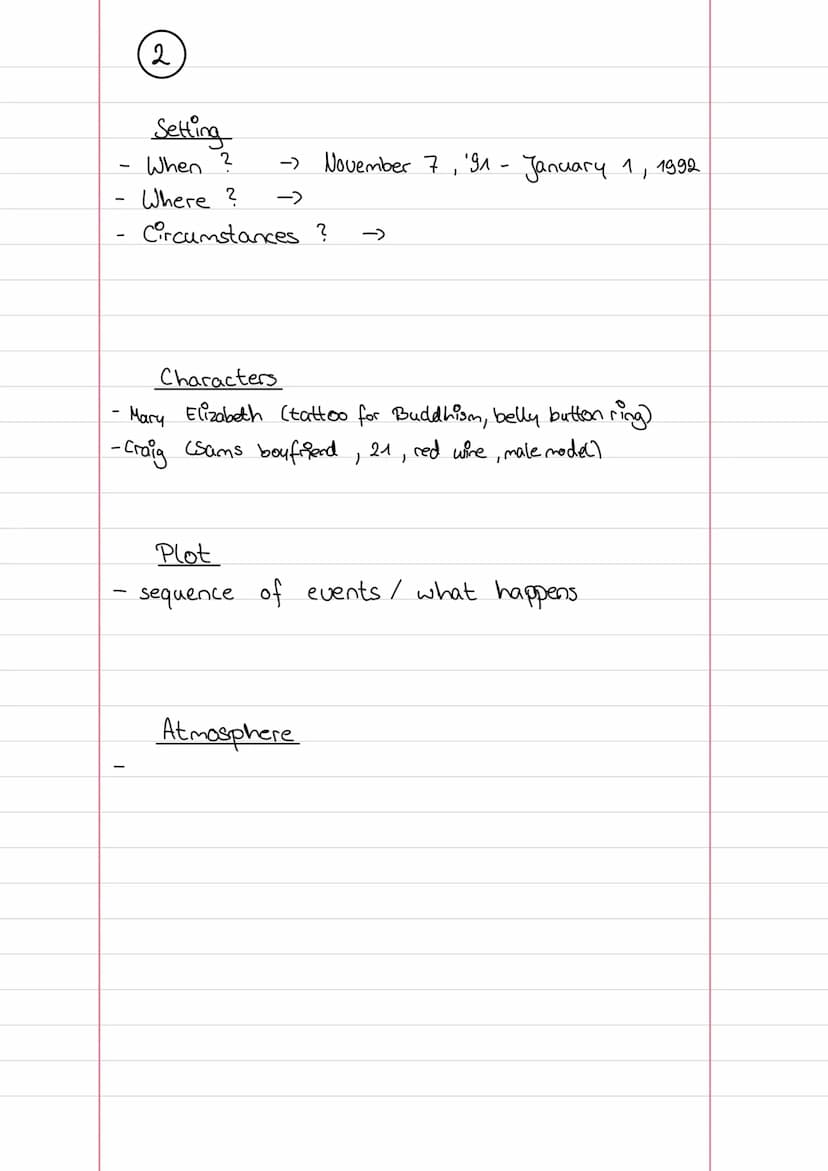 2
Setting
- When ? -> November 7, '91 - January 1, 1992
- Where ? ->
- Circumstances ? ->
Characters
- Mary Elizabeth (tattoo for Buddhism, belly button ring)
- Craig (Sams boyfriend, 21, red wire, male model)
Plot
- sequence of events / what happens
Atmosphere
-